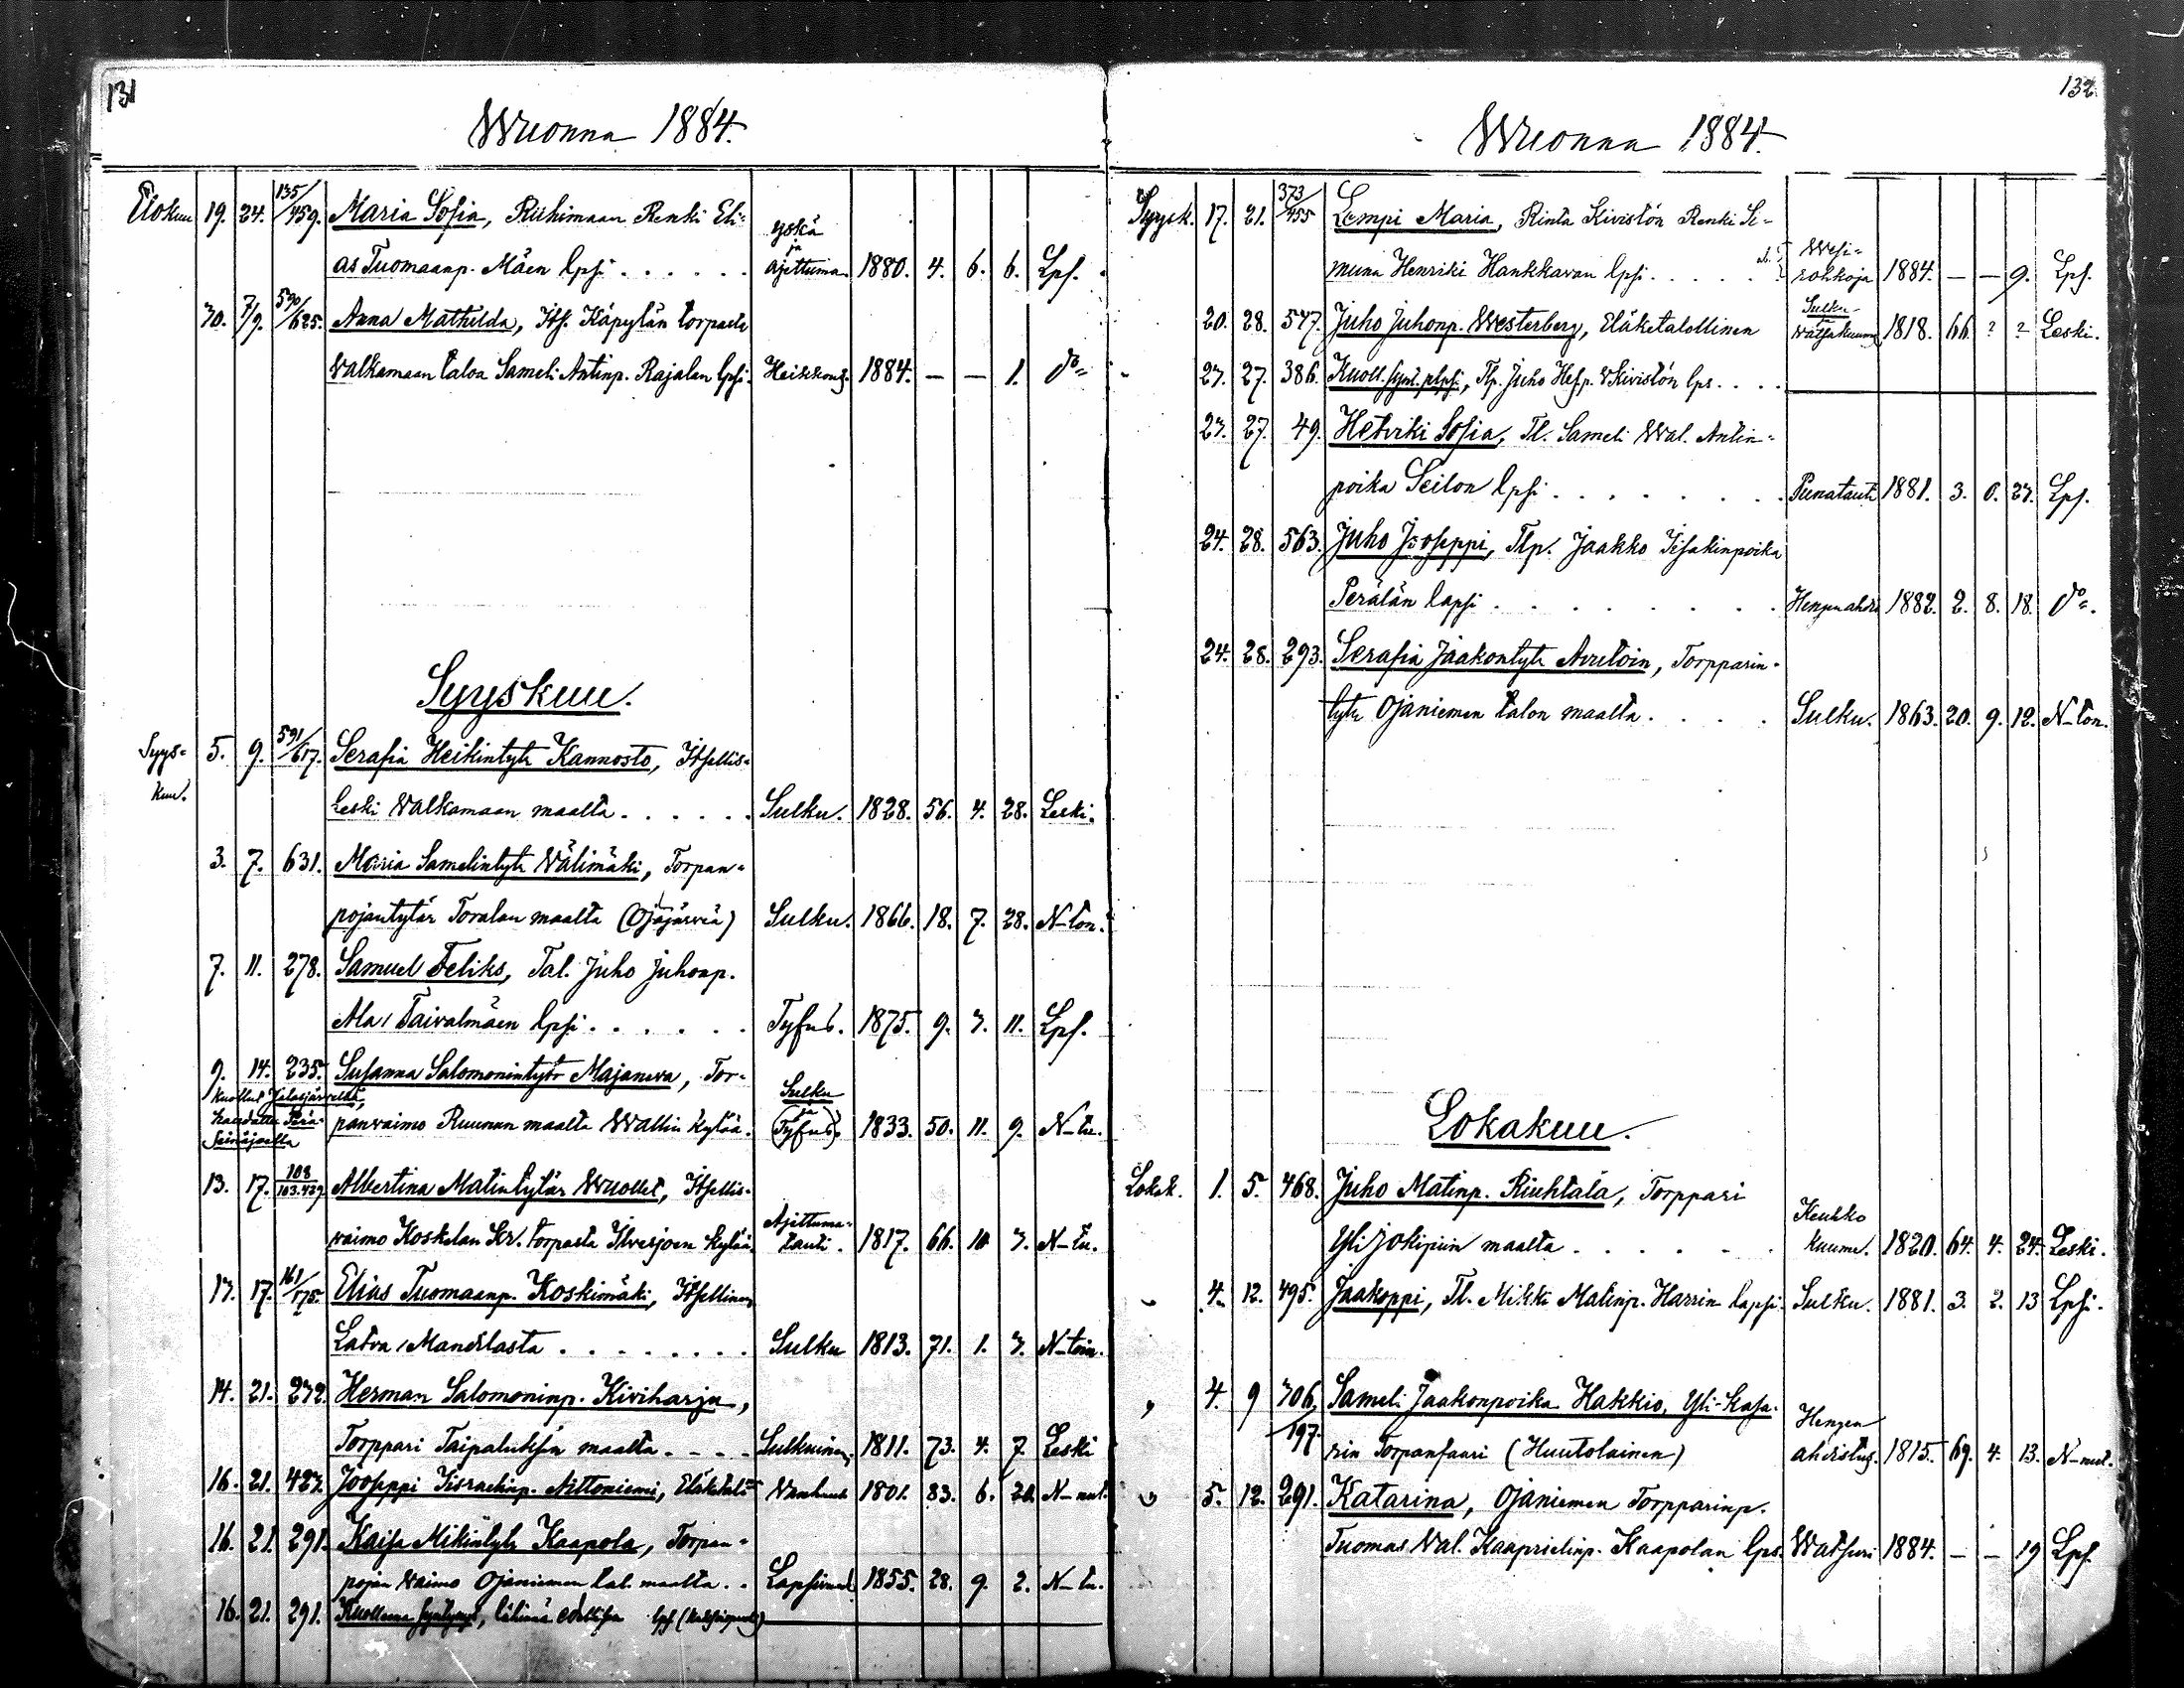 131
Wuonna 1884.
Elokuu 19. 24. 135/459. Maria Sofia, Riihimaan Renki Eli-
as Tuomaanp. Mäen lpsi . . . . . yskä ja Ajettuma. 1880. 4. 6. 6. Lps.
30. 7/9. 590/625. Anna Mathilda, Its. Käpylän torpasta
Walkamaan taloa Sameli Antinp. Rajalan lpsi. Heikkous. 1884. — — 1. do
Syyskuu.
Syys-
kuu. 5. 9. 591/617. Serafia Heikintytr Kannosto, Itsellis-
Leski Walkamaan maalta . . . . . . Sulku. 1828. 56. 4. 28. Leski.
3. 7. 631. Maria Samelintytr Wälimäki, Torpan-
pojantytär Toralan maalta (Ojajärviä) Sulku. 1866. 18. 7. 28. N-ton.
7. 11. 278. Samuel Feliks, Tal. Juho Juhonp.
Ala/Taivalmäen lpsi . . . . . . Tyfus. 1875. 9. 3. 11. Lps.
9. 14. 235. Susanna Salomonintytr Majaneva, Tor-
Kuollut Jalasjärvellä,
haudattu Perä-
Seinäjoella
panvaimo Ruunun maalta Wallin kylää. Sulku ja (Tyfus). 1833. 50. 11. 9. N-tu.
13. 17. 108/103.439. Albertina Matintytär Wuollet, Itsellis-
vaimo Koskelan Kr. torpasta Ilvesjoen kylää. Ajettuma-tauti. 1817. 66. 10 3. N-tu.
13. 17. 161/175. Elias Tuomaanp. Koskimäki, Itsellinen
Latva/Mandilasta . . . . . . . . Sulku 1813. 71. 1. 3. N-toin.
14. 21. 232. Herman Salomoninp. Kiviharju,
Torppari Taipaluksen maalta . - - - Sulkuinen. 1811. 73. 4. 7 Leski
16. 21. 427. Jooseppi Iisraelinp. Aittoniemi, Vanhuus 1801. 83. 6. N-nut.
16. 21. 291. Kaisa Mikintytr Kaapola, Torpan-
pojan Waimo Ojaniemen tal. maalta . . 1855. 28. 9. 2. N-tu.
16. 21. 291. Kuollunna syntynyt, lps
132
Wuonna 1884.
Syysk. 17. 21. 373/455 Lempi Maria, Rinta Kivistön Renki Si-
muna Henriki Hankkavan lpsi . . . . . Wesi-rohkoja 1884. — — 9. Lps.
20. 28. 547. Juho Juhonp. Westerberg, Eläketalollinen Sulku- Watsakuume 1818. 66. ? ? Leski.
23. 27. 386. Kuoll. synt. plpsi, Tlp. Juho Hesp. Kivistön lps. . . .
23. 27. 49. Hetviki Sofia, Tl. Sameli Wal. Antin-
poika Seilon lpsi . . . . . . . . Punatauti 1881. 3. 0. 27. Lps.
24. 28. 563. Juho Jooseppi, Tlp. Jaakko Iisakinpoika
Perälän lapsi . . . . . . . . Hengenahdis 1882. 2. 8. 18. do.
24. 28. 293. Serafia Jaakontytr Avutoin, Torpparin-
tytr Ojaniemen talon maalta . . . . Sulku. 1863. 20. 9. 12. N-ton.
Lokakuu.
Lokak. 1. 5. 468. Juho Matinp. Riuhtala, Torppari
Yli Jokipiin maalta . . . . . . Keuhko kuume. 1820. 64. 4. 24. Leski.
4. 12. 495. Jaakoppi, Tl. Mikki Matinp. Harrin lapsi. Sulku. 1881. 3. 2. 13 Lpsi.
4. 9 706/197. Sameli Jaakonpoika Hakkio, Yli-Kasa-
rin Torpanfaari (Huutolainen) Hengen ahdistus. 1815. 69. 4. 13. N-nut.
5. 12. 291. Katarina, Ojaniemen Torpparinp.
Tuomas Wal. Kaaprielinp. Kaapolan lps. Watsuri 1884. — — 19 Lps.